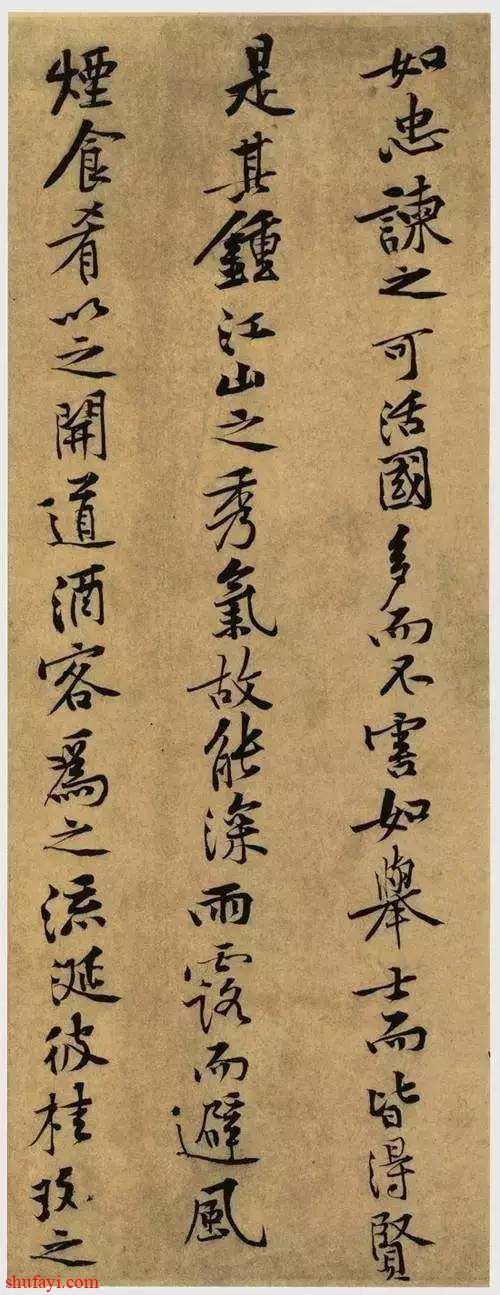 如忠諫之可活國多而不害如舉士而皆得賢
是其鍾江山之秀氣故能深雨露而避風
煙食肴以之開道酒客爲之流涎彼桂玫之
shufayi.com